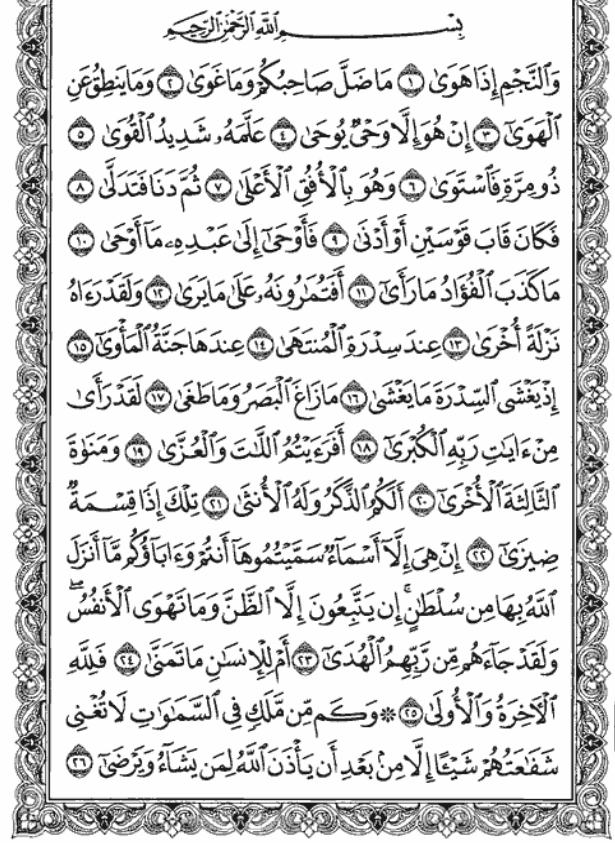 بِسْمِ اللَّهِ الرَّحْمَٰنِ الرَّحِيمِ
وَالنَّجْمِ إِذَا هَوَىٰ ١ مَا ضَلَّ صَاحِبُكُمْ وَمَا غَوَىٰ ٢ وَمَا يَنطِقُ عَنِ
الْهَوَىٰٓ ٣ إِنْ هُوَ إِلَّا وَحْيٌ يُوحَىٰ ٤ عَلَّمَهُۥ شَدِيدُ الْقُوَىٰ ٥
ذُو مِرَّةٍ فَاسْتَوَىٰ ٦ وَهُوَ بِالْأُفُقِ الْأَعْلَىٰ ٧ ثُمَّ دَنَا فَتَدَلَّىٰ ٨
فَكَانَ قَابَ قَوْسَيْنِ أَوْ أَدْنَىٰ ٩ فَأَوْحَىٰٓ إِلَىٰ عَبْدِهِۦ مَآ أَوْحَىٰ ١٠
مَا كَذَبَ الْفُؤَادُ مَا رَأَىٰٓ ١١ أَفَتُمَٰرُونَهُۥ عَلَىٰ مَا يَرَىٰ ١٢ وَلَقَدْ رَءَاهُ
نَزْلَةً أُخْرَىٰ ١٣ عِندَ سِدْرَةِ الْمُنتَهَىٰ ١٤ عِندَهَا جَنَّةُ الْمَأْوَىٰٓ ١٥
إِذْ يَغْشَى السِّدْرَةَ مَا يَغْشَىٰ ١٦ مَا زَاغَ الْبَصَرُ وَمَا طَغَىٰ ١٧ لَقَدْ رَأَىٰ
مِنْ ءَايَٰتِ رَبِّهِ الْكُبْرَىٰٓ ١٨ أَفَرَءَيْتُمُ اللَّٰتَ وَالْعُزَّىٰ ١٩ وَمَنَوٰةَ
الثَّالِثَةَ الْأُخْرَىٰٓ ٢٠ أَلَكُمُ الذَّكَرُ وَلَهُ الْأُنثَىٰ ٢١ تِلْكَ إِذًا قِسْمَةٌ
ضِيزَىٰٓ ٢٢ إِنْ هِيَ إِلَّآ أَسْمَآءٌ سَمَّيْتُمُوهَآ أَنتُمْ وَءَابَآؤُكُم مَّآ أَنزَلَ
اللَّهُ بِهَا مِن سُلْطَٰنٍ ۚ إِن يَتَّبِعُونَ إِلَّا الظَّنَّ وَمَا تَهْوَى الْأَنفُسُ ۖ
وَلَقَدْ جَآءَهُم مِّن رَّبِّهِمُ الْهُدَىٰٓ ٢٣ أَمْ لِلْإِنسَٰنِ مَا تَمَنَّىٰ ٢٤ فَلِلَّهِ
الْـَٔاخِرَةُ وَالْأُولَىٰ ٢٥ ۞ وَكَم مِّن مَّلَكٍ فِي السَّمَٰوَٰتِ لَا تُغْنِي
شَفَٰعَتُهُمْ شَيْـًٔا إِلَّا مِنۢ بَعْدِ أَن يَأْذَنَ اللَّهُ لِمَن يَشَآءُ وَيَرْضَىٰٓ ٢٦